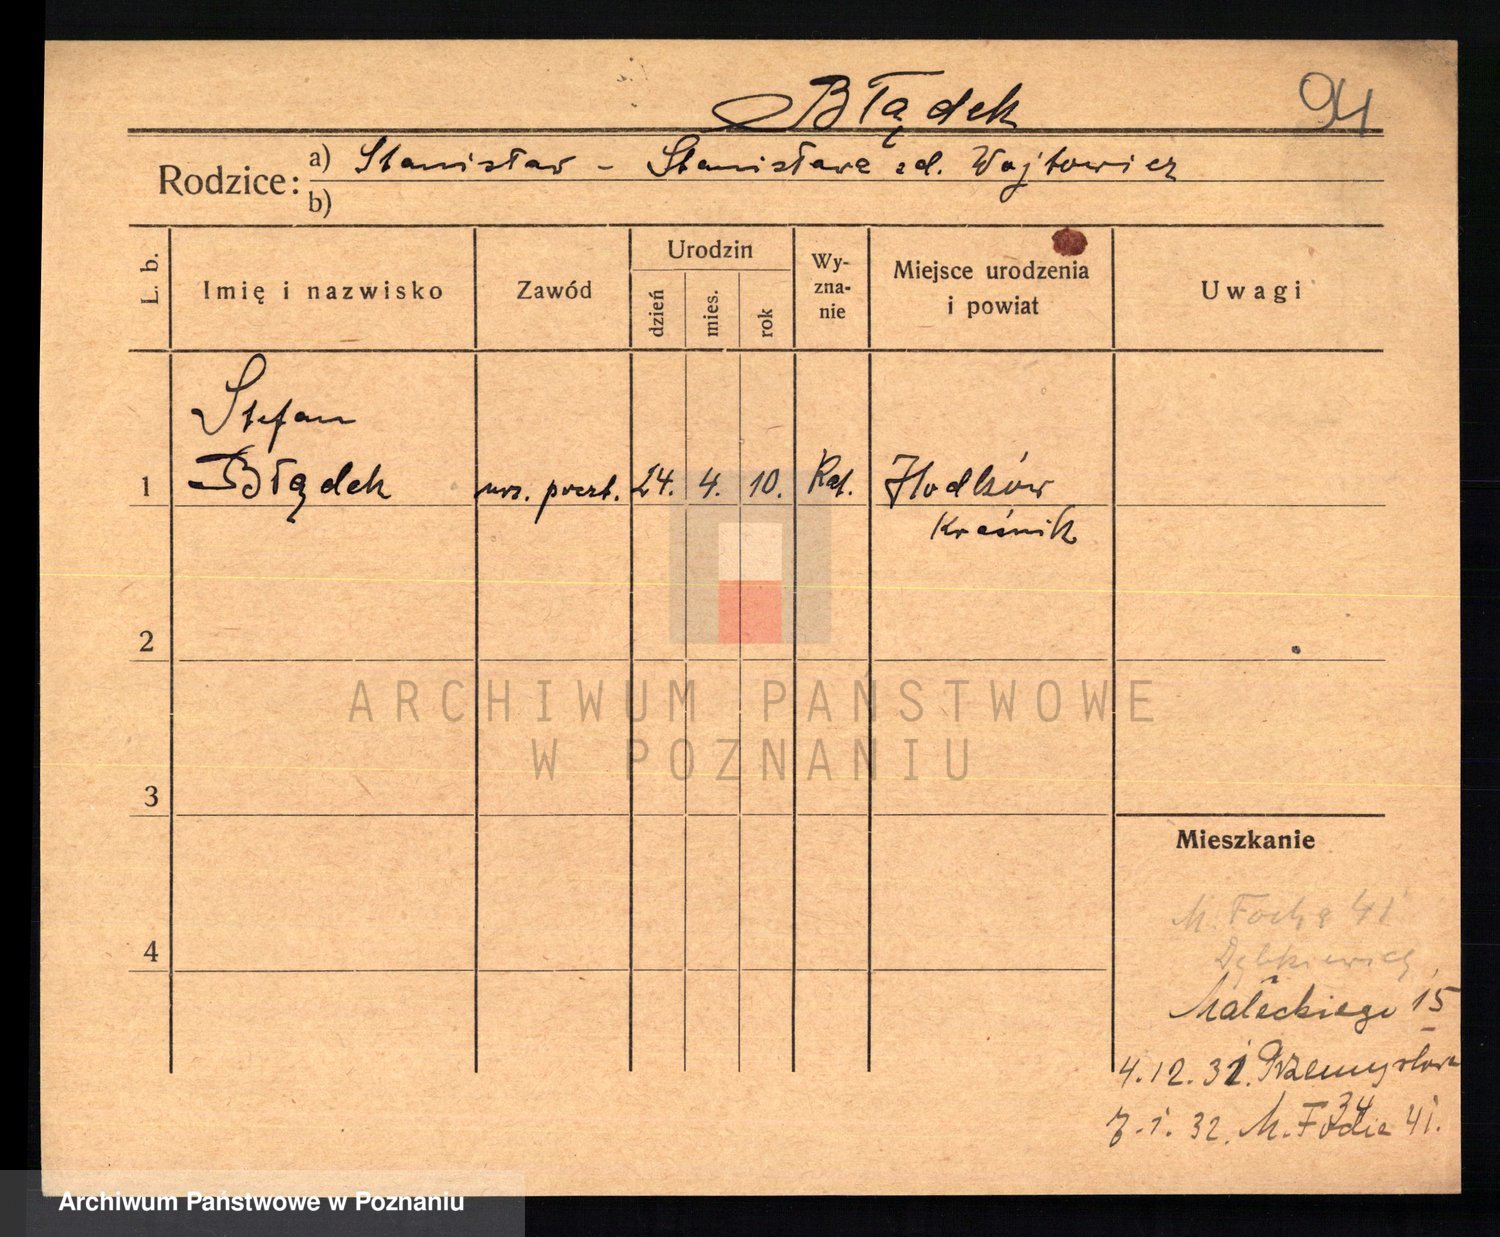 Błądek
94
Rodzice:
a) Stanisław – Stanisława zd. Wojtowicz
b)
L. b.
Imię i nazwisko
Zawód
Urodzin
dzień
mies.
rok
Wy-
zna-
nie
Miejsce urodzenia
i powiat
Uwagi
Stefan
1 Błądek urz. poczt. 24. 4. 10. Kat.
Kraśnik
2
ARCHIWUM PAŃSTWOWE
W POZNANIU
3
Mieszkanie
M. Focha 41
4
Małeckiego 15
4.12.31. Przemysłowa
34
7.1.32. M. Focha 41.
Archiwum Państwowe w Poznaniu